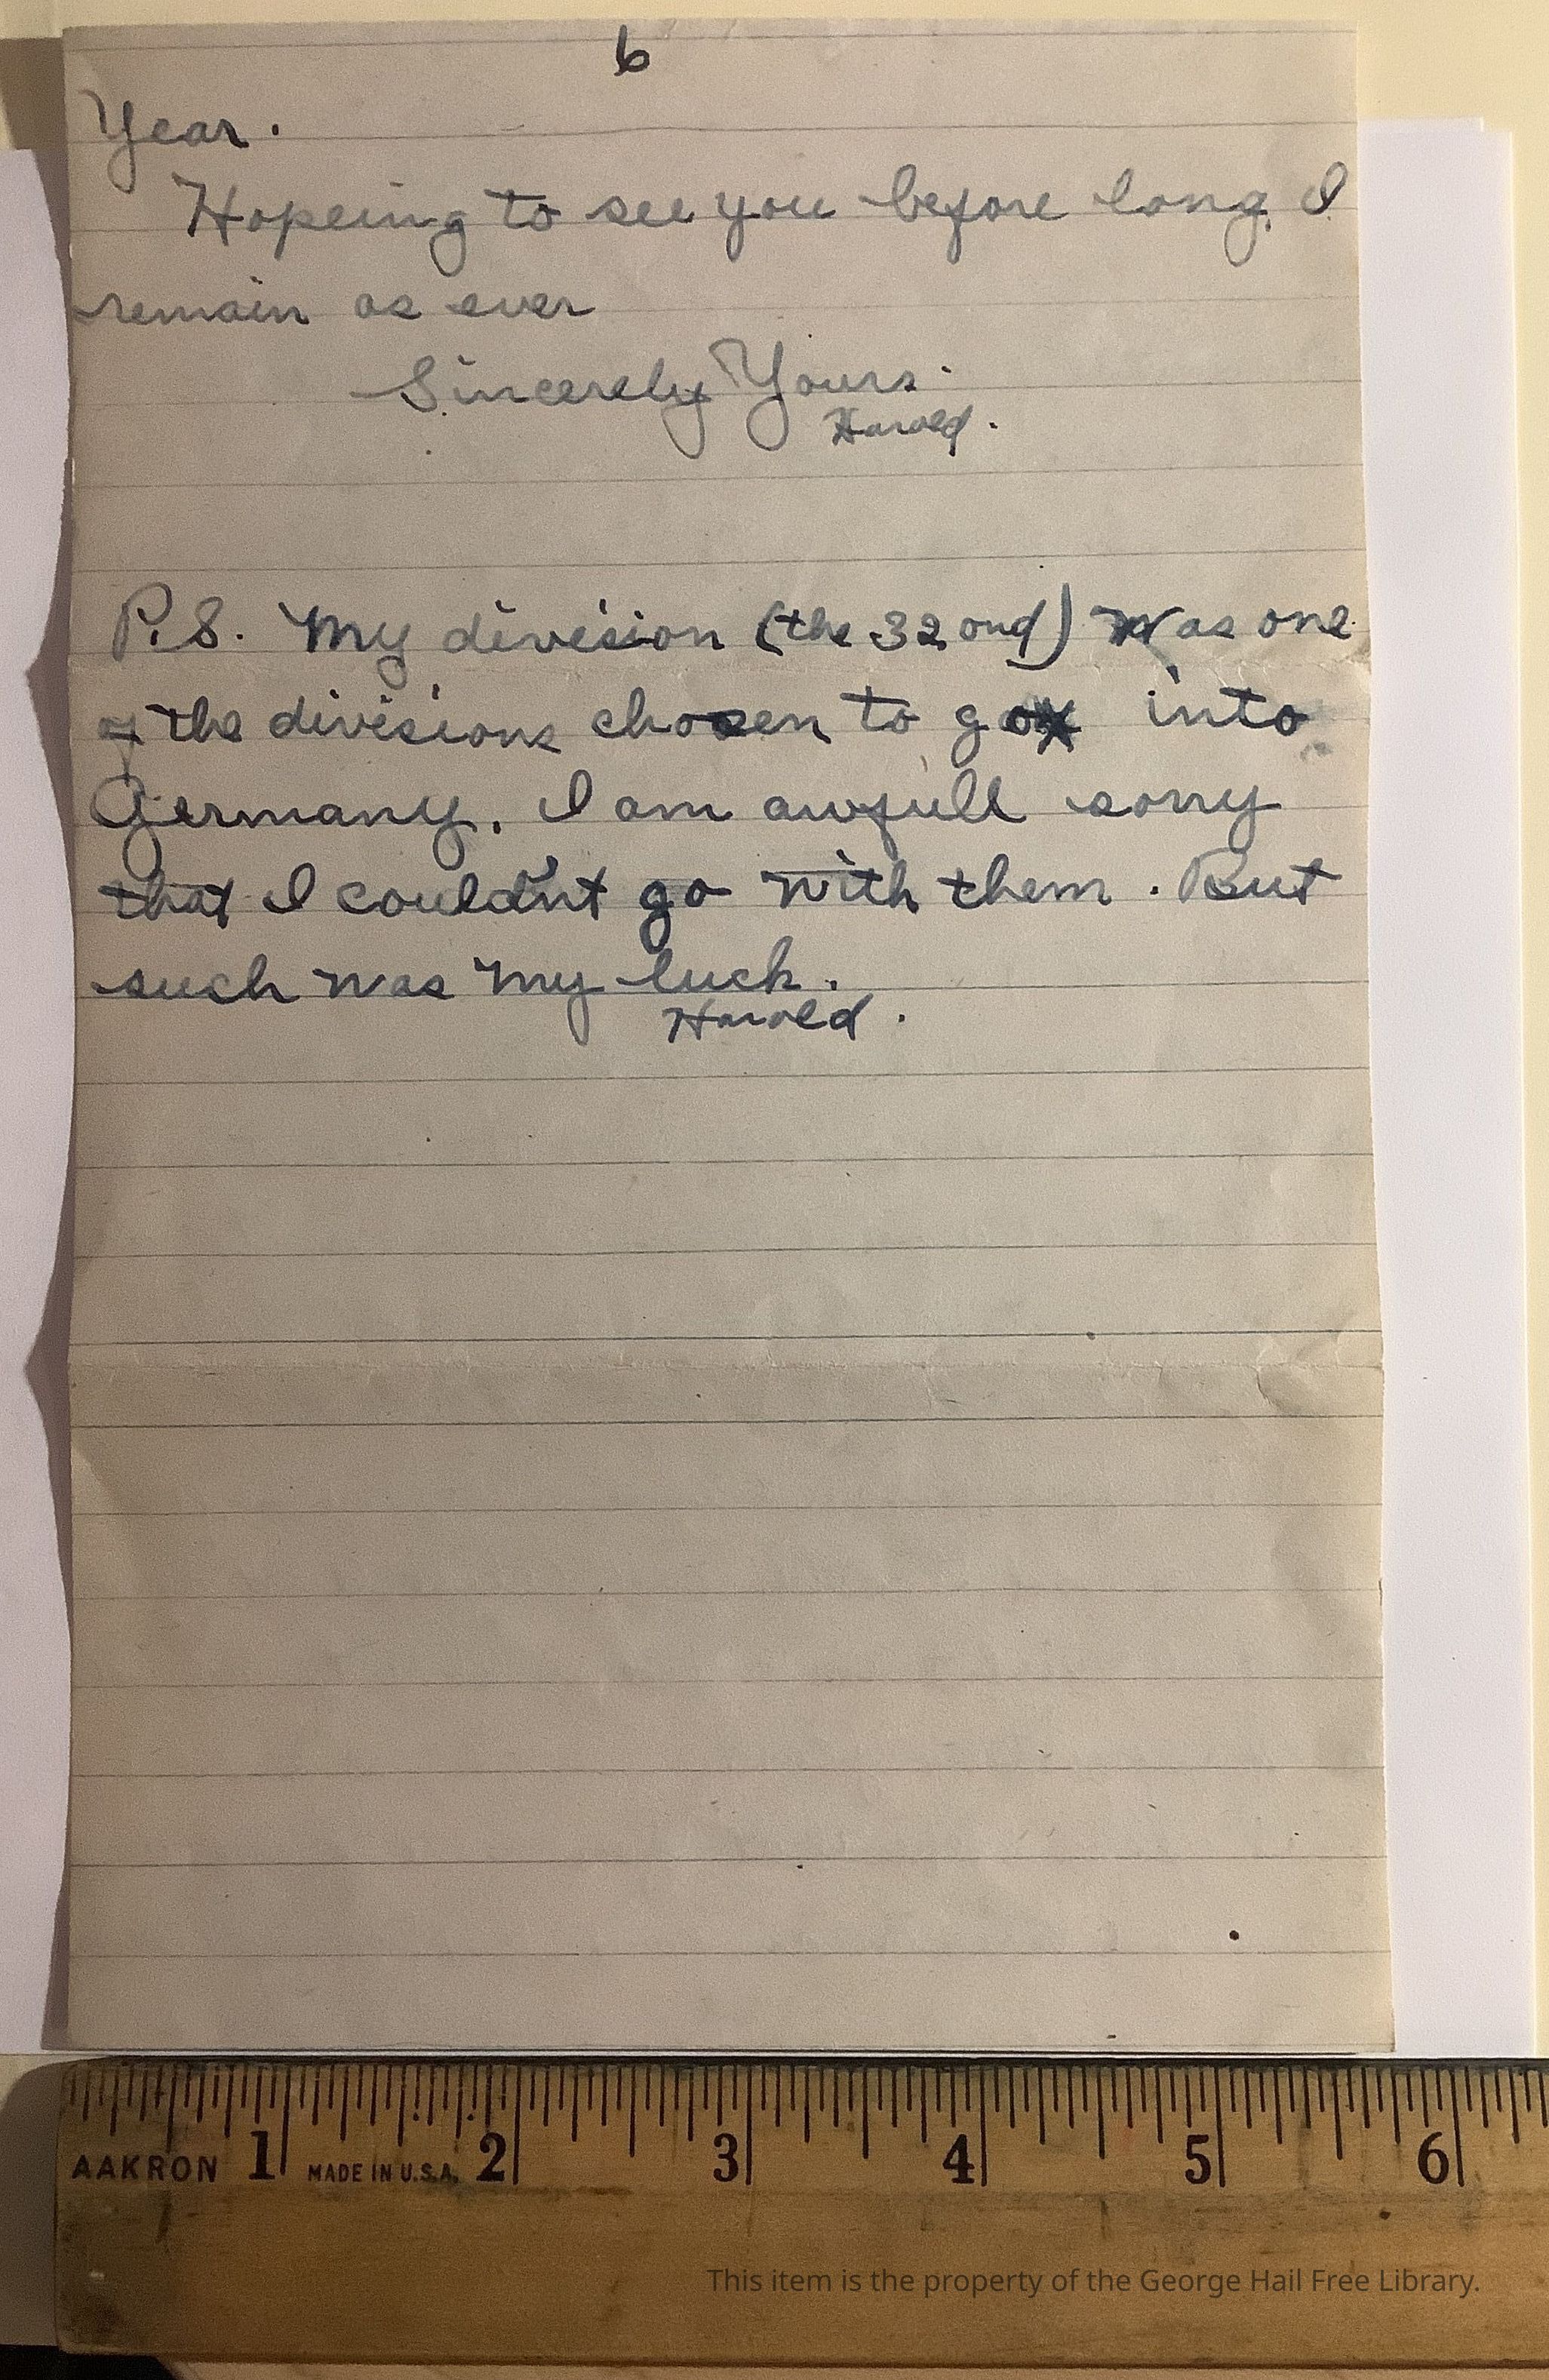 6
Year.
Hopeing to see you before long, I
remain as ever
Sincerely Yours.
Harold.
P.S. My division (the 32 ond) Was one
of the divisions chosen to go into
Germany. I am awfull sorry
that I couldn't go with them. But
such was my luck.
Harold.
AAKRON 1 MADE IN U.S.A. 2 3 4 5 6
This item is the property of the George Hail Free Library.